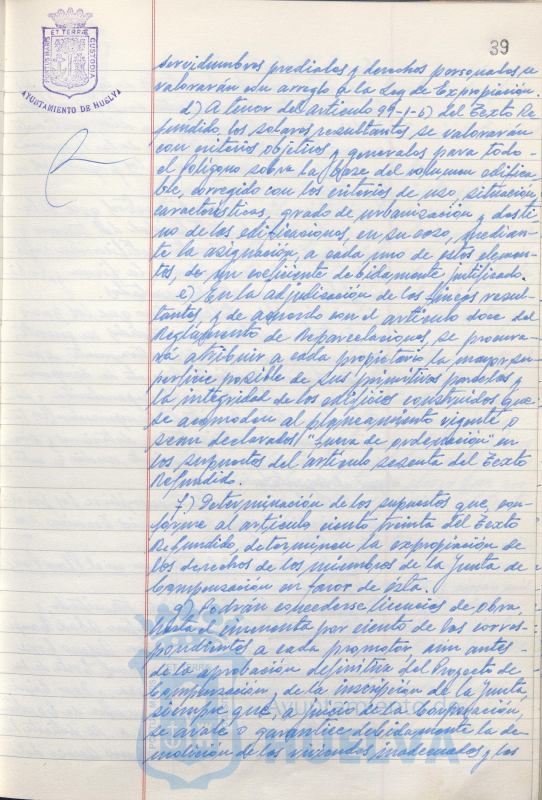 39
PORTUS MARIS ET TERRAE CUSTODIA
AYUNTAMIENTO DE HUELVA
servidumbres prediales y derechos personales, se
valorarán con arreglo a la Ley de Expropiación.
d) A tenor del artículo 99-1-b) del Texto Re-
fundido, los solares resultantes se valorarán
con criterios objetivos y generales para todo
el Polígono sobre la base del volumen edifica-
ble, corregido con los criterios de uso, situación,
características, grado de urbanización y desti-
no de las edificaciones, en su caso, median-
te la asignación, a cada uno de estos elemen-
tos, de un coeficiente debidamente justificado.
e) En la adjudicación de las fincas resul-
tantes, y de acuerdo con el artículo doce del
Reglamento de Reparcelaciones, se procura-
rá atribuir a cada propietario la mayor su-
perficie posible de sus primitivas parcelas y
la integridad de los edificios construidos que
se acomoden al planeamiento vigente o
sean declarados "fuera de ordenación" en
los supuestos del artículo sesenta del Texto
Refundido.
f) Determinación de los supuestos que, con-
forme al artículo ciento treinta del Texto
Refundido, determinen la expropiación de
los derechos de los miembros de la Junta de
Compensación en favor de ésta.
g) Podrán concederse licencias de obra,
hasta el cincuenta por ciento de las corres-
pondientes a cada promotor, aun antes
de la aprobación definitiva del Proyecto de
Compensación, de la inscripción de la Junta,
siempre que, a juicio de la Corporación,
se avale o garantice debidamente la de-
molición de las viviendas inadecuadas y los
Ayuntamiento de
HUELVA